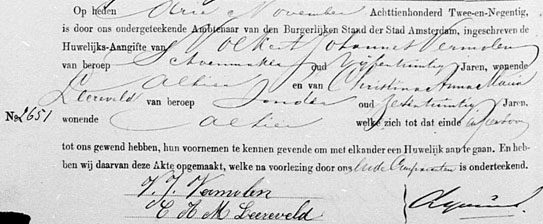 Op heden drie November Achttienhonderd Twee-en-Negentig,
is door ons ondergeteekende Ambtenaar van den Burgerlijken Stand der Stad Amsterdam, ingeschreven de
Huwelijks-Aangifte van Volkert Johannes Vermolen
van beroep Schoenmaker oud Vijfentwintig Jaren, wonende
Alhier en van Christina Anna Maria
Leereveld van beroep Zonder oud Zesentwintig Jaren,
No. 2651 wonende Alhier welke zich tot dat einde
tot ons gewend hebben, hun voornemen te kennen gevende om met elkander een Huwelijk aan te gaan. En heb-
ben wij daarvan deze Akte opgemaakt, welke na voorlezing door ons en de Comparanten is onderteekend.
V. J. Vermolen
C A M Leereveld